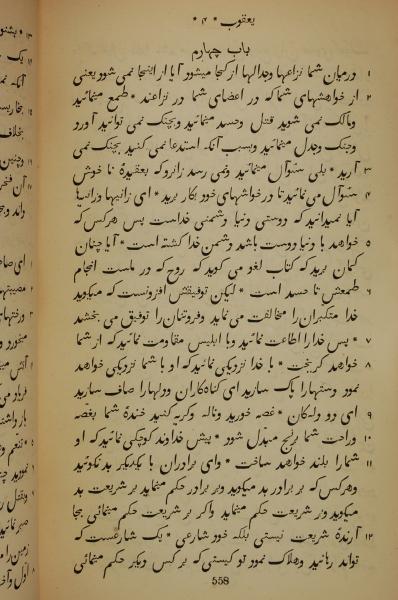 یعقوب * ۴ *
باب چهارم
۱ درمیان شما نزاعها وجدالها از کجا میشود آیا از اینجا نمی شود یعنی
۲ از خواهشهای شما که در اعضای شما در نزاعند * طمع مینمائید
ومالک نمی شوید قتل وحسد مینمائید وبچنک نمی توانید آورد
وجنک وجدل مینمائید وبسبب آنکه استدعا نمی کنید بچنک نمی
۳ آرید * بلی سئوال مینمائید ونمی رسد زانرو که بعقیدهٔ نا خوش
۴ سئوال می نمائید تا در خواهشهای خود بکار برید * ای زانیها وزانیها
آیا نمیدانید که دوستی دنیا دشمنی خداست پس هرکس که
۵ خواهد با دنیا دوست باشد دشمن خدا کشته است * آیا چنان
کمان برید که کتاب لغو می کوید که روح که در ماست انجام
۶ طمعش تا حسد است * لیکن توفیقش افزونست که میکوید
خدا متکبران را مخالفت می نماید وفروتنان را توفیق می بخشد
۷ * پس خدا را اطاعت نمائید وبا ابلیس مقاومت نمائید که از شما
۸ خواهد کریخت * با خدا نزدیکی نمائید که او با شما نزدیکی خواهد
نمود ودستهارا پاک سازید ای کناه کاران ودلهارا صاف سازید
۹ ای دو دله کان * غصه خورید وناله وکریه کنید خندهٔ شما بغصه
۱۰ وراحت شما برنج مبدّل شود * پیش خداوند کوچکی نمائید که او
۱۱ شمارا بلند خواهد ساخت * وای برادران با یکدیکر بد نکوئید
وهرکس که بر برادر بد میکوید وبر برادر حکم مینماید بر شریعت بد
میکوید وبر شریعت حکم مینماید واکر بر شریعت حکم مینمائی بجا
۱۲ آرندهٔ شریعت نیستی بلکه خود شارعی * یک شارعست که
تواند رهانید وهلاک نمود تو کیستی که بر کس دیکر حکم مینمائی
558